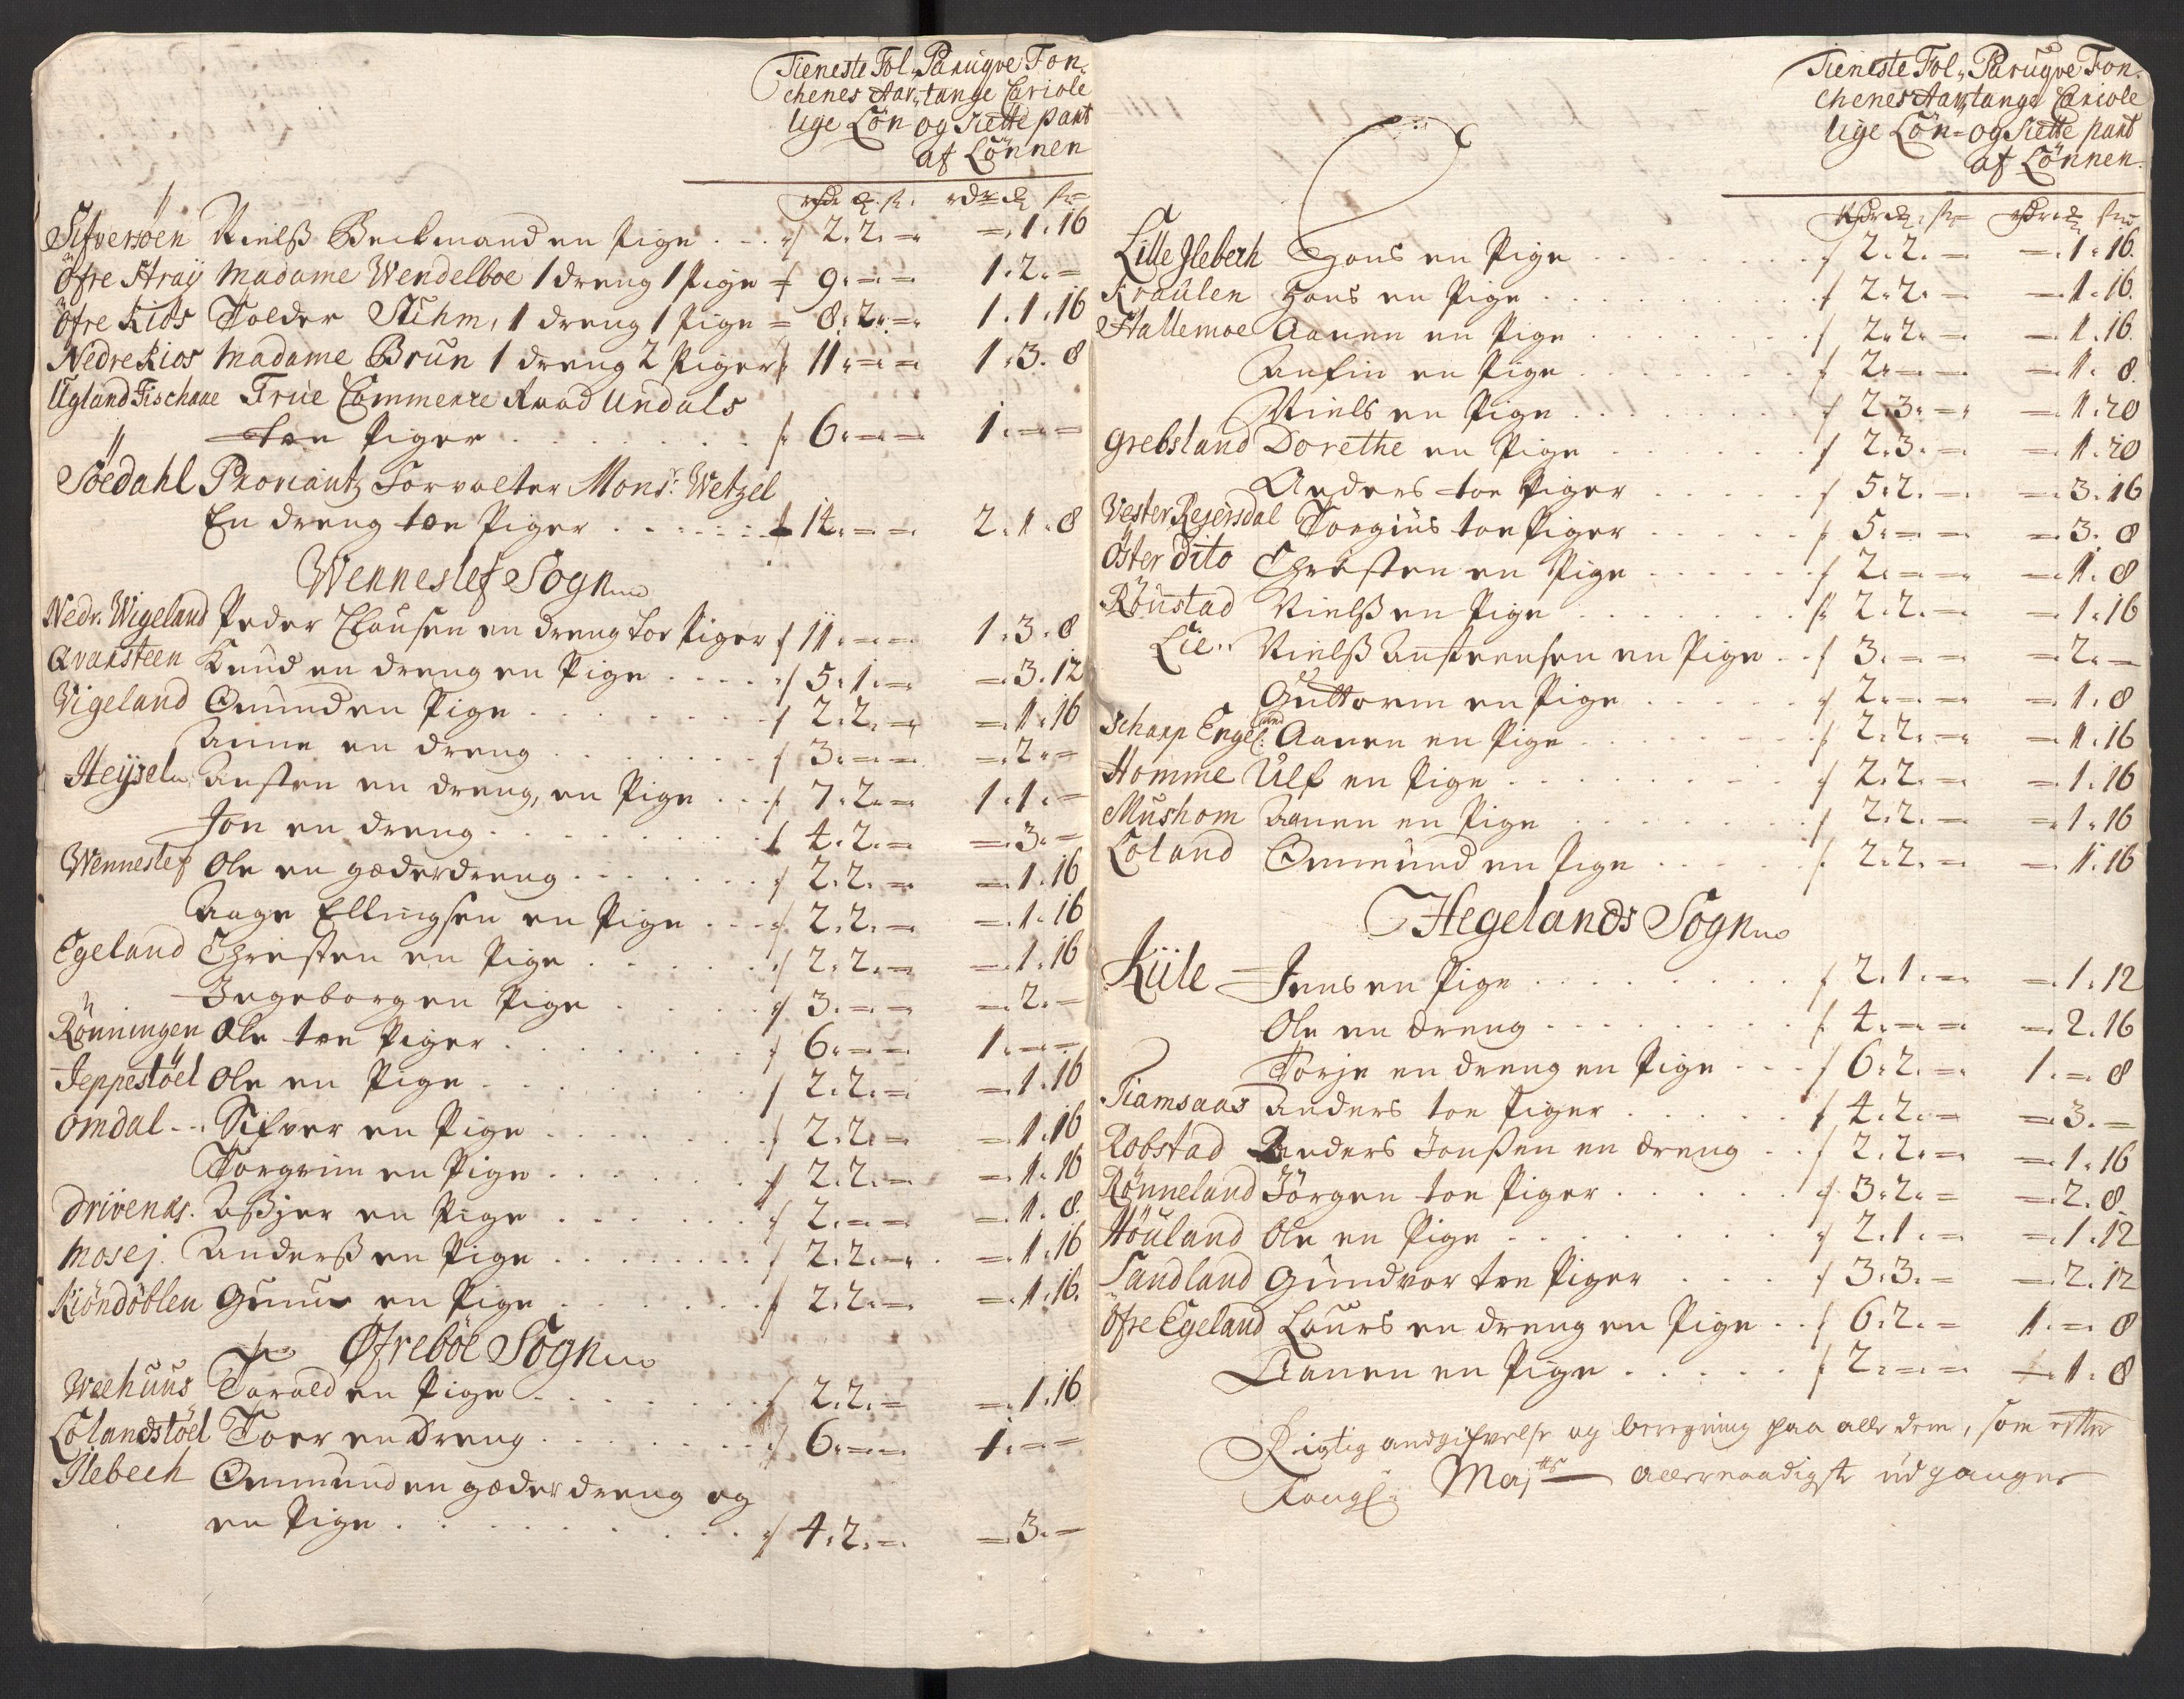 Tieneste Fol„ Paruqve Fon„
chenes Aar„ tange Cariole
lige Lön og siette part
af Lönnen
rdr ß rdr ß
Sifversöen Nielß Beckmand en Pige . . . 2. 2. = =. 1. 16
öfre Straÿ Madame Wendelboe 1 dreng 1 Pige 9. = = 1. 2. =
öfre Kios Tolder Stuhm, 1 dreng 1 Pige = 8. 2. = 1. 1. 16
Nedre Kios Madame Brun 1 dreng 2 Piger 11. = = 1. 3. 8
Ugland Fischaae Frue Commerce Raad Undals
toe Piger . . . 6. = = 1. = =
Söedahl Proviantz Forvalter Monsr: Wetzel
En dreng toe Piger . . . 14. = = 2. 1. 8
Wenneslef Sogn
Nedr. Wigeland Peder Clausen en dreng toe Piger 11. = = 1. 3. 8
Qvarsteen Knud en dreng en Pige . . . 5. 1. = =. 3. 12
Vigeland Omund en Pige . . . 2. 2. = =. 1. 16
Anne en dreng . . . 3. = = =. 2. =
Heÿsel Austen en dreng, en Pige . . . 7. 2. = 1. 1. =
Jon en dreng . . . 4. 2. = =. 3. =
Wenneslef Ole en gæderdreng . . . 2. 2. = =. 1. 16
Aage Ellingsen en Pige . . . 2. 2. = =. 1. 16
Egeland Christen en Pige . . . 2. 2. = =. 1. 16
Ingeborg en Pige . . . 3. = = =. 2. =
Rönningen Ole toe Piger . . . 6. = = 1. = =
Jeppestöel Ole en Pige . . . 2. 2. = =. 1. 16
Omdal Sifver en Pige . . . 2. 2. = =. 1. 16
Torgrim en Pige . . . 2. 2. = =. 1. 16
Drivenes. Aßjer en Pige . . . 2. = = =. 1. 8.
Mosej. Anderß en Pige . . . 2. 2. = =. 1. 16
Kiöndöblen Gunuf en Pige . . . 2. 2. = =. 1. 16.
Øfreböe Sogn
Weehuus Tarald en Pige . . . 2. 2. = =. 1. 16
Lolandstöel Toer en dreng . . . 6. = = 1. = =
Ilebech Ommund en gæderdreng og
en Pige . . . 4. 2. = =. 3. =
Tieneste Fol„ Paruqve Fon„
chenes Aar„ tange Cariole
lige Lön= og siette part
af Lönnen.
rdr ß rdr ß
Lille Ilebech Hans en Pige . . . 2. 2. = =. 1. 16.
Kraulen Hans en Pige . . . 2. 2. = =. 1. 16.
Hallemoe Aanen en Pige . . . 2. 2. = =. 1. 16.
Anfin en Pige . . . 2. = = =. 1. 8.
Niels en Pige . . . 2. 3. = =. 1. 20
Grebsland Dorethe en Pige . . . 2. 3. = =. 1. 20
Anders toe Piger . . . 5. 2. = =. 3. 16
Vester Rejersdal Torgius toe Piger . . . 5. = = =. 3. 8
Öster dito Christen en Pige . . . 2. = = =. 1. 8
Röustad Nielß en Pige . . . 2. 2. = =. 1. 16
Lie Nielß Austensen en Pige . . 3. = = =. 2. =
Guttorm en Pige . . . 2. = = =. 1. 8
Scharp Engeland Aanen en Pige . . . 2. 2. = =. 1. 16
Homme Ulf en Pige . . . 2. 2. = =. 1. 16
Mushom Aanen en Pige . . . 2. 2. = =. 1. 16
Loland Ommund en Pige . . . 2. 2. = =. 1. 16
Hegelands Sogn
Kiile Jens en Pige . . . 2. 1. = =. 1. 12
Ole en dreng . . . 4. = = =. 2. 16
Torje en dreng en Pige . . . 6. 2. = 1. =. 8
Tiamsaas Anders toe Piger . . . 4. 2. = =. 3. =
Robstad Anders Jonßen en dreng . . 2. 2. = =. 1. 16
Rönneland Jörgen toe Piger . . . 3. 2. = =. 2. 8.
Höuland Ole en Pige . . . 2. 1. = =. 1. 12
Sandland Gundvor toe Piger . . . 3. 3. = =. 2. 12
Öfre Egeland Laurs en dreng en Pige . . 6. 2. = 1. =. 8
Aanen en Pige . . . 2. = = =. 1. 8
Rigtig andgifvelse og beregning paa alle dem, som efter
Kongl: Majts allernaadigste udgangne